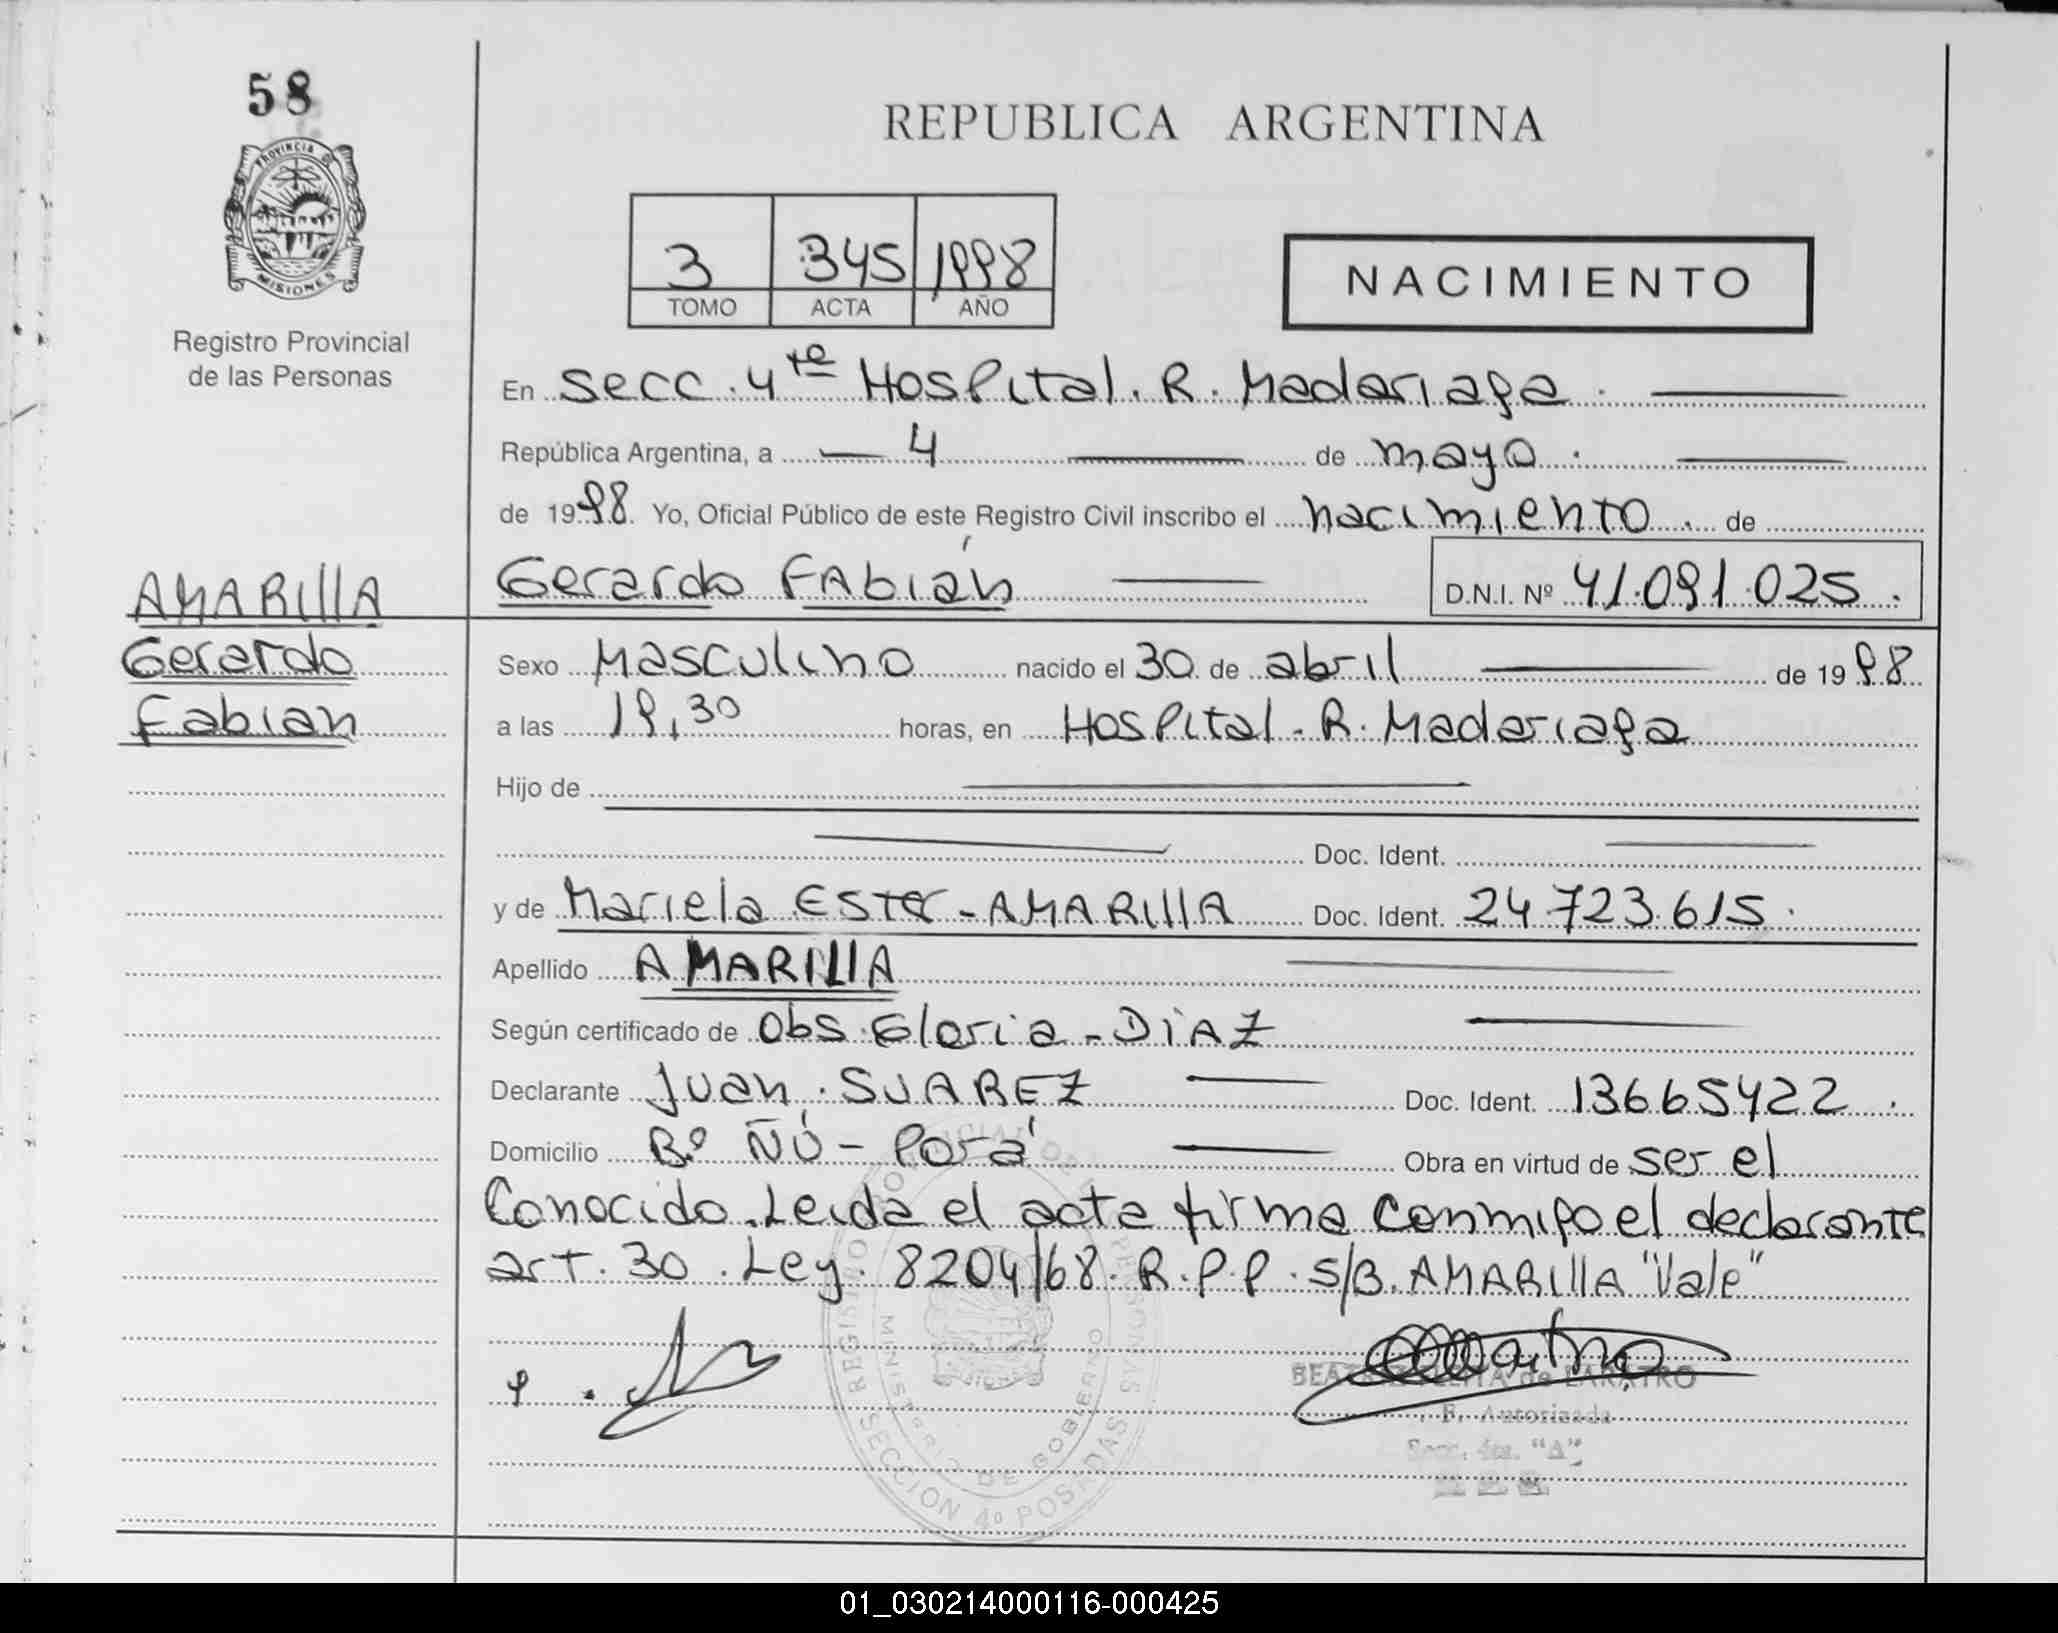 58
PROVINCIA DE
MISIONES
Registro Provincial
de las Personas
REPUBLICA ARGENTINA
3 345 1998
TOMO ACTA AÑO
NACIMIENTO
En Secc. 4ta Hospital. R. Madariaga.
República Argentina, a 4 de mayo.
de 1998. Yo, Oficial Público de este Registro Civil inscribo el nacimiento. de
Gerardo FAbián D.N.I. Nº 41.091.025.
AMARIllA
Gerardo
Fabian
Sexo Masculino nacido el 30 de abril de 1998
a las 19,30 horas, en Hospital. R. Madariaga
Hijo de
Doc. Ident.
y de Mariela ESTER - AMARIllA Doc. Ident. 24.723.615.
Apellido AMARIllA
Según certificado de Obs. Gloria - DiAZ
Declarante Juan. SUAREZ Doc. Ident. 13665422.
Domicilio Bº ÑÚ - Porá Obra en virtud de ser el
Conocido. Leida el acta firma conmigo el declarante
art. 30. Ley. 8204/68. R.P.P. S/B. AMARIllA "Vale"
MINISTERIO DE GOBIERNO
SECCION 4º POSADAS
de LARATRO
F. Autorizada
Secc. 4ta. "A"
01_030214000116-000425